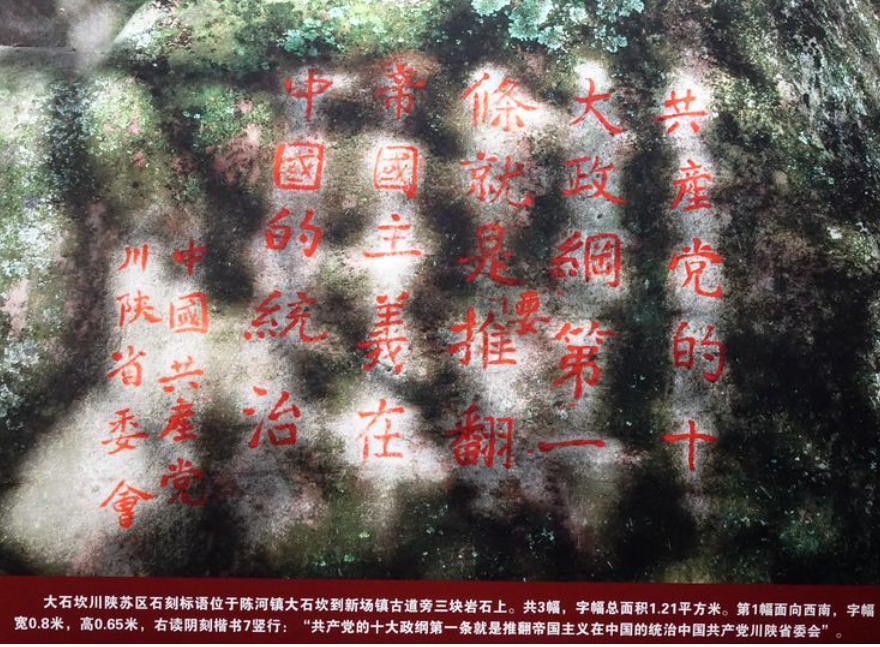 共産党的十
大政綱第一
條就是要推翻
帝國主義在
中國的統治
中國共産党
川陕省委會
大石坎川陕苏区石刻标语位于陈河镇大石坎到新场镇古道旁三块岩石上。共3幅，字幅总面积1.21平方米。第1幅面向西南，字幅
宽0.8米，高0.65米，右读阴刻楷书7竖行：“共产党的十大政纲第一条就是推翻帝国主义在中国的统治中国共产党川陕省委会”。